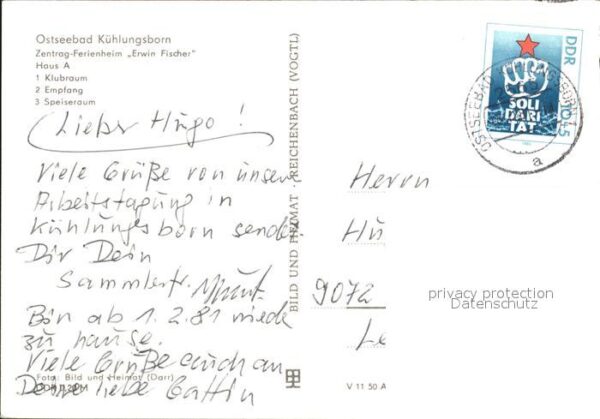 Ostseebad Kühlungsborn
Zentrag-Ferienheim „Erwin Fischer"
Haus A
1 Klubraum
2 Empfang
3 Speiseraum
Lieber Hugo!
Viele Grüße von unsere
Arbeitstagung in
Kühlungsborn sendet
Dir Dein
Sammlerfr.
Bin ab 1.2.81 wiede
zu hause.
Viele Grüße auch an
Deine liebe Gattin
Foto: Bild und Heimat (Darr)
BILD UND HEIMAT · REICHENBACH (VOGTL)
DDR
10+5
SOLI
DARI
TÄT
OSTSEEBAD
a
Herrn
Hu
9072
Le
privacy protection
Datenschutz
V 11 50 A